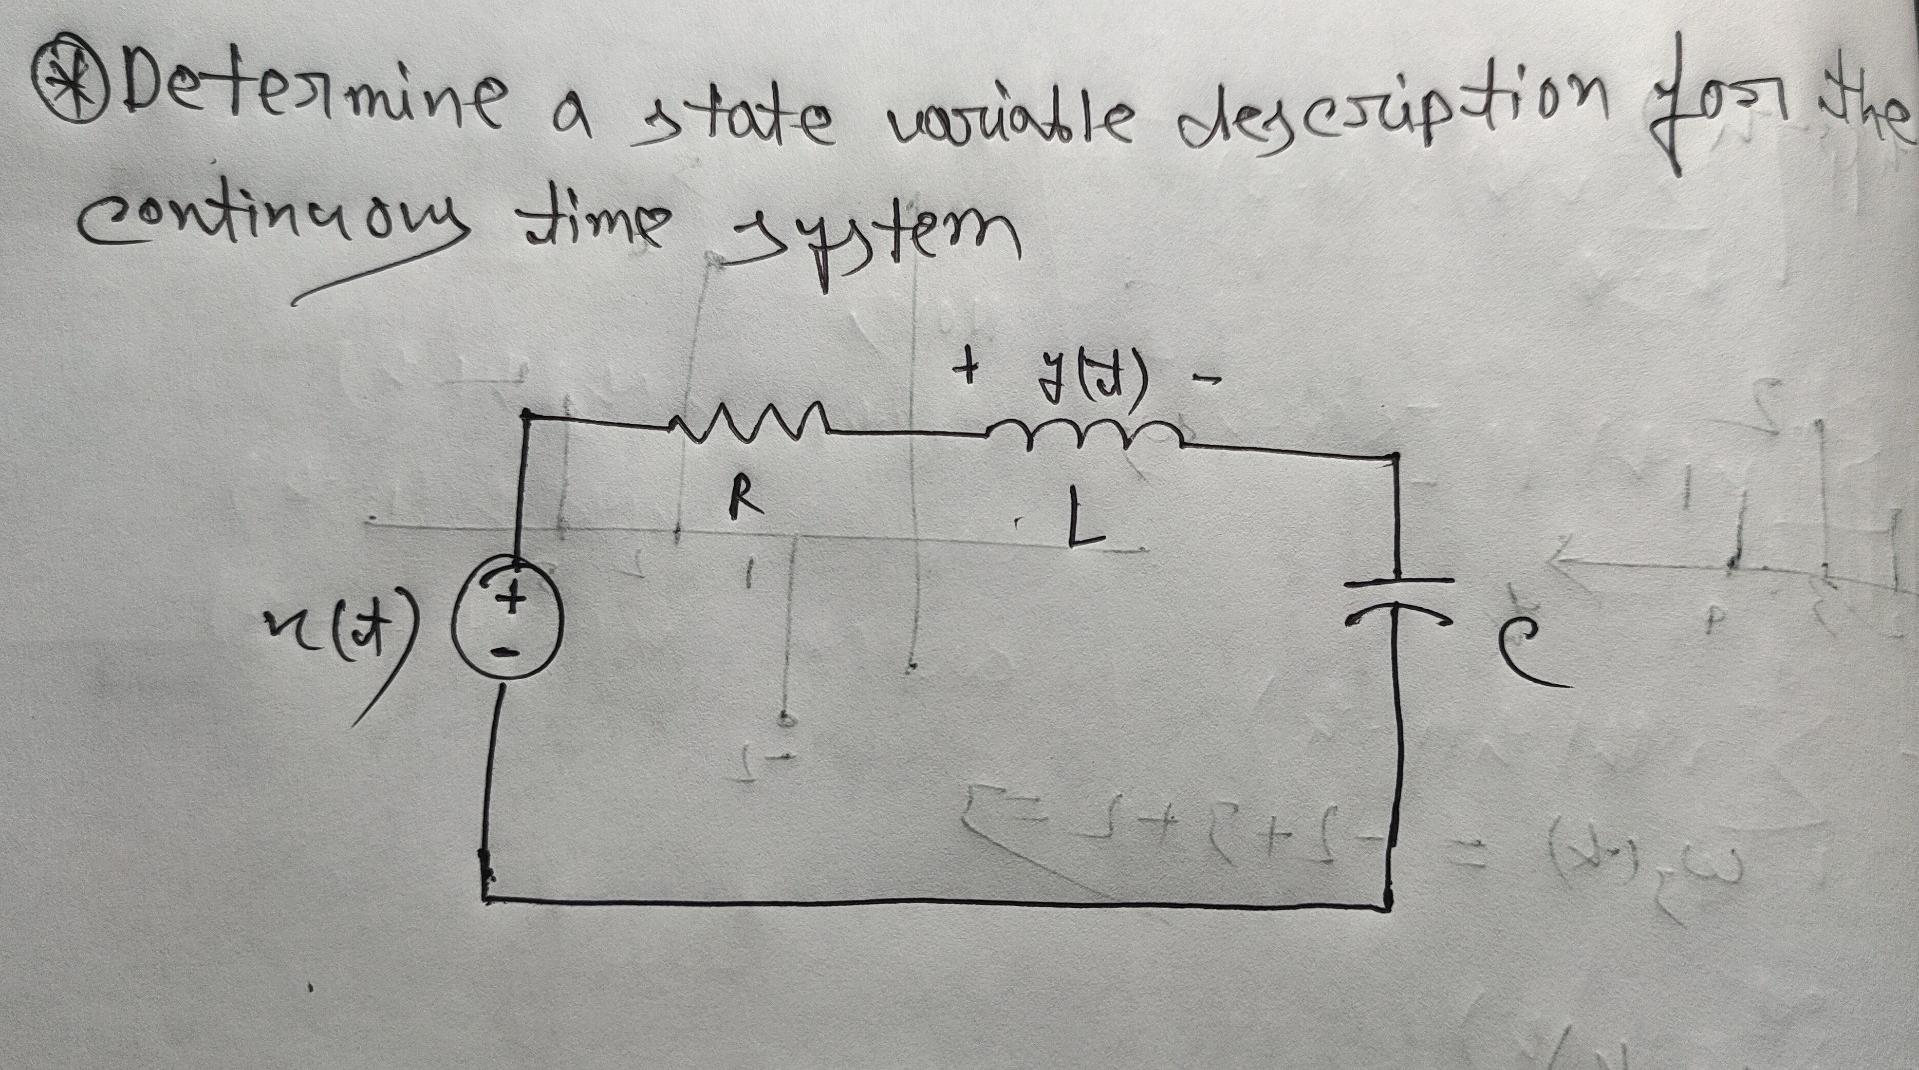 ⊛ Determine a state variable description for the
continuous time system
+ y(t) -
R
L
x(t)
+
-
C